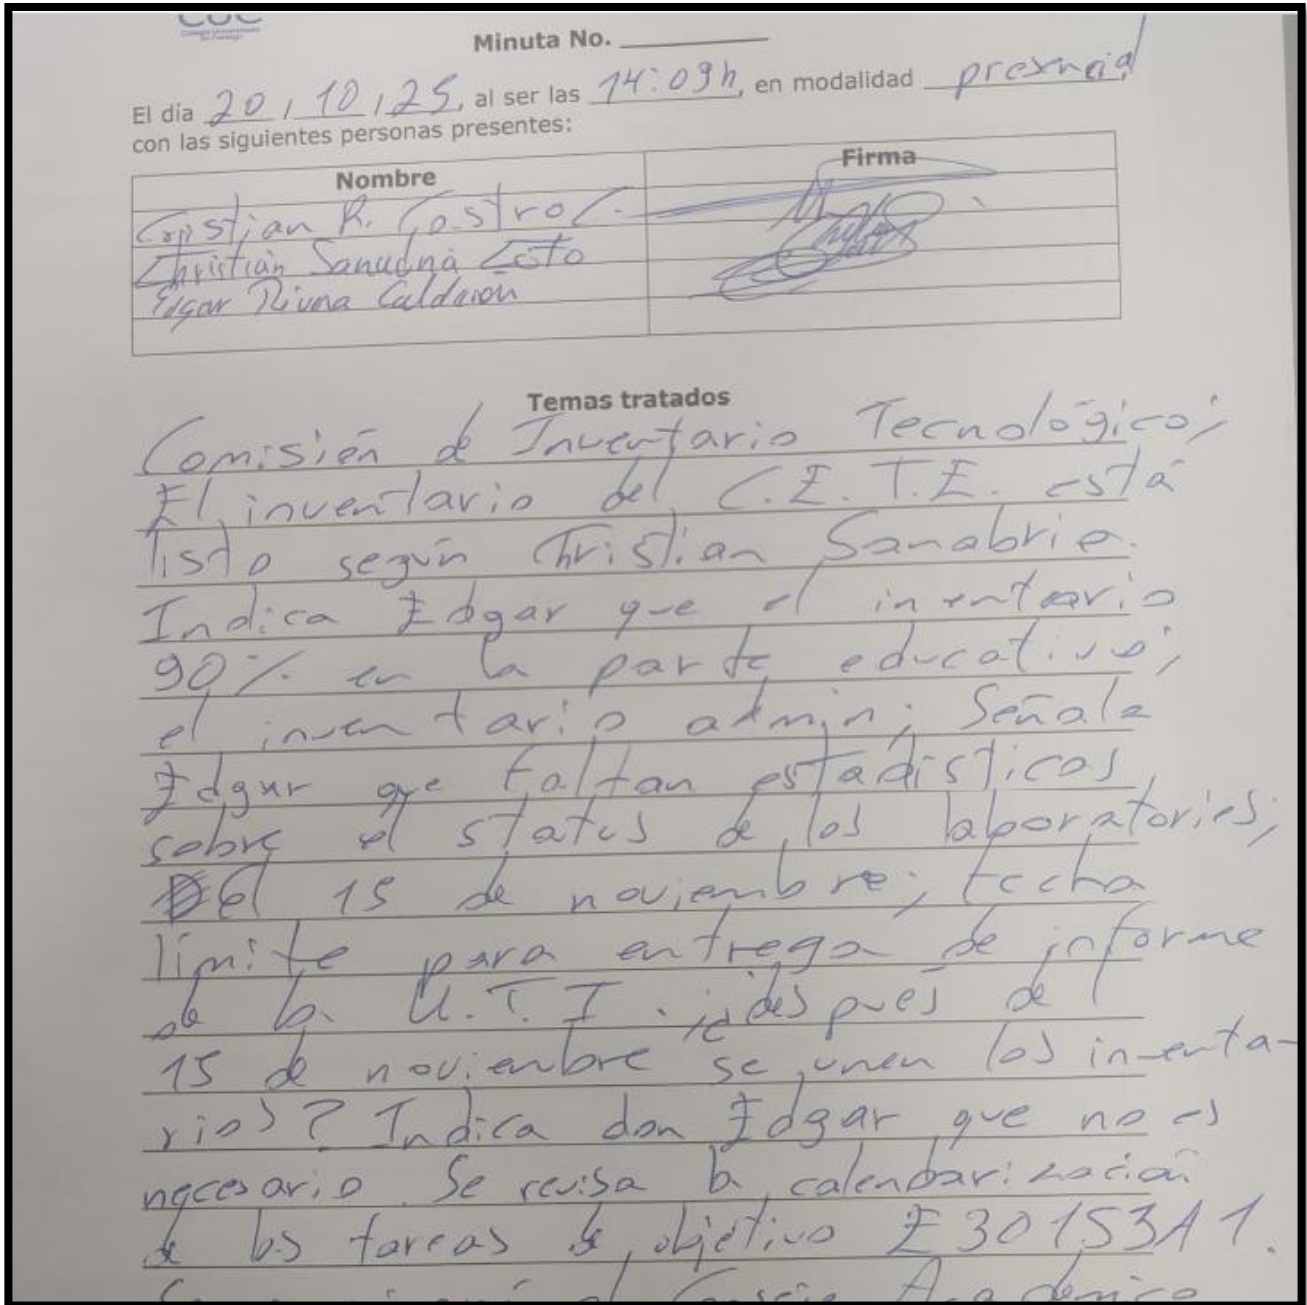 CUC
Minuta No.
El día 20 / 10 / 25, al ser las 14:09h, en modalidad presencial
con las siguientes personas presentes:
Nombre Firma
Cristian R. Castro C.
Christian Sanabria Coto
Edgar Rivera Calderón
Temas tratados
Comisión de Inventario Tecnológico;
El inventario del C.E.T.E. está
listo según Christian Sanabria.
Indica Edgar que el inventario
90% en la parte educativa;
el inventario admin; Señala
Edgar que faltan estadísticas
sobre el status de los laboratorios;
El 15 de noviembre; fecha
límite para entrega de informe
de la U.T.I. ¿después de
15 de noviembre se unen los inventa-
rios? Indica don Edgar que no es
necesario. Se revisa la calendarización
de las tareas de objetivo E30153A1.
Consejo Académico